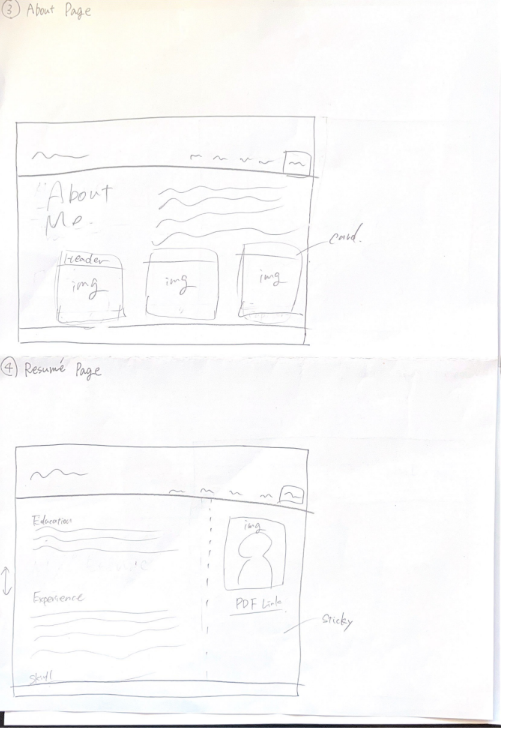 ③ About Page
About
Me.
Header
img
img
img
card.
④ Resumé Page
Education
img
Experience
PDF Link
Sticky
Skill